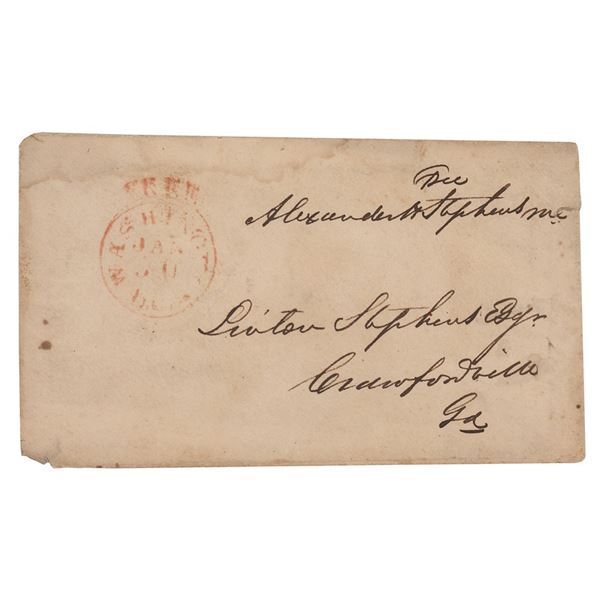 FREE
WASHINGT
JAN
30
D.C.
Free
Alexander H Stephens MC
Linton Stephens Esqr
Crawfordville
Ga